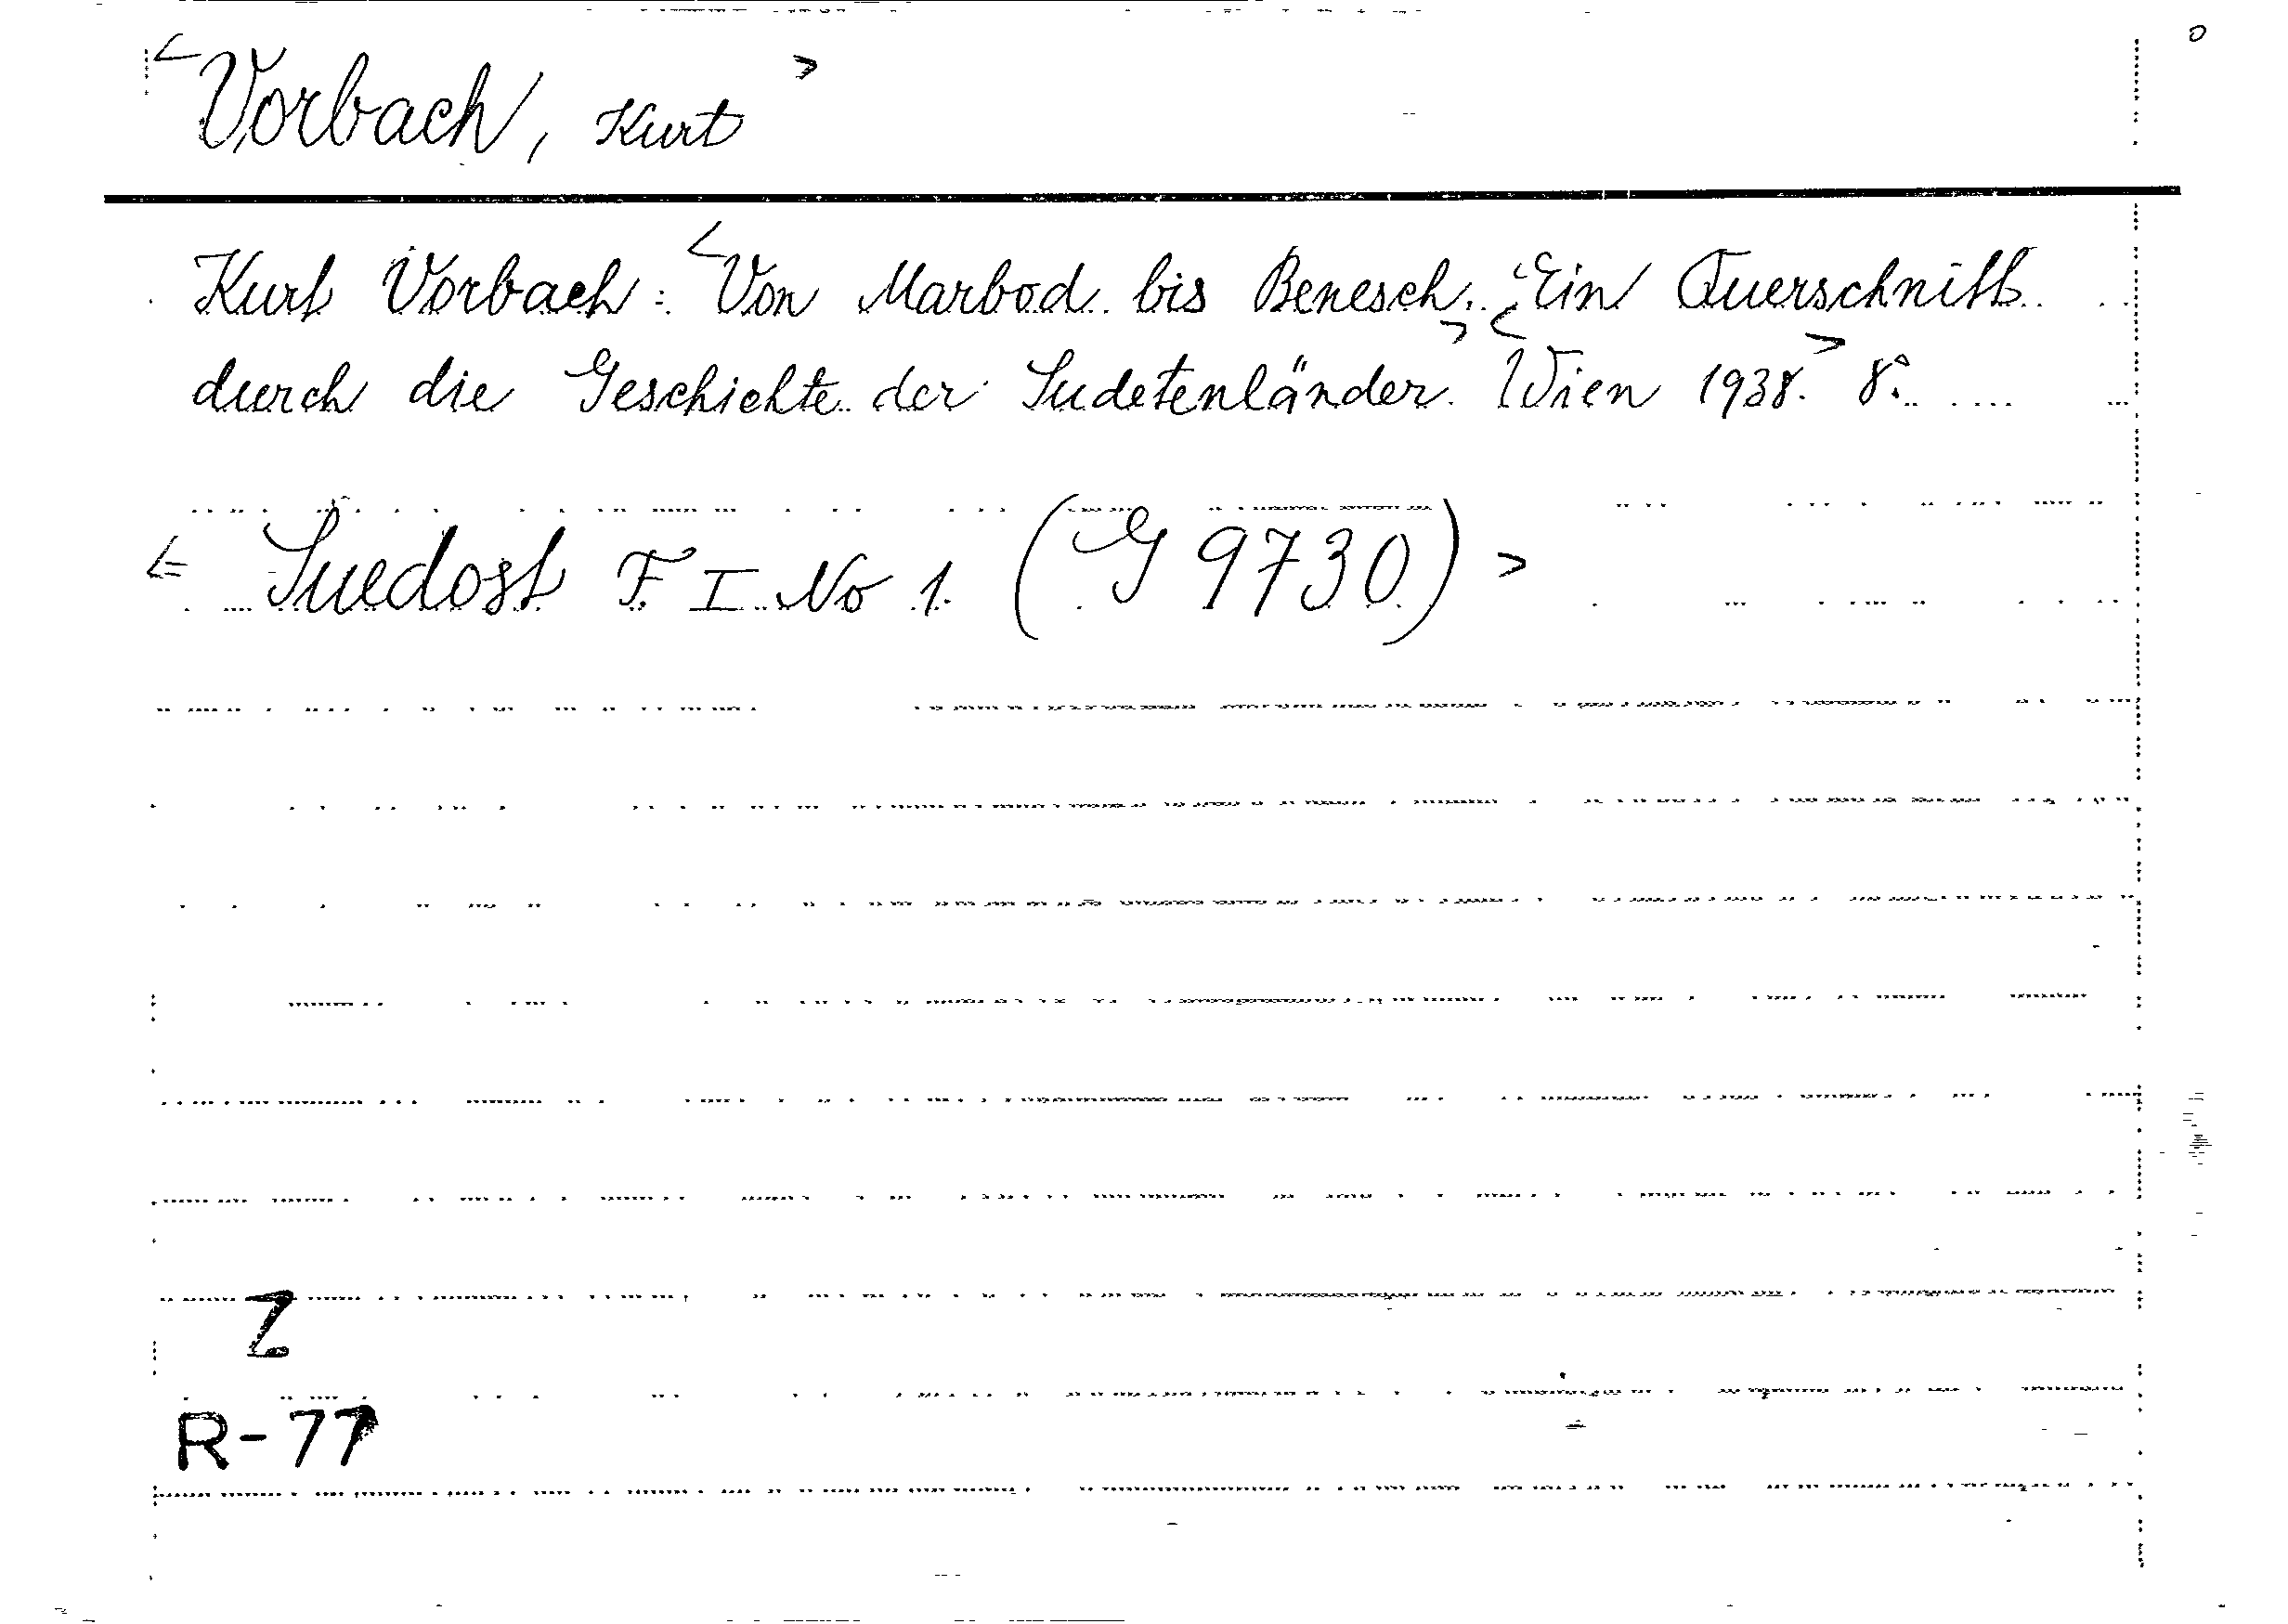 <Vorbach, Kurt>
Kurt Vorbach: <Von Marbod bis Benesch.> <Ein Querschnitt
durch die Geschichte der Sudetenländer. Wien 1938.> 8°.
<= Suedost F. I. No 1. (G 9730) >
Z
R-77